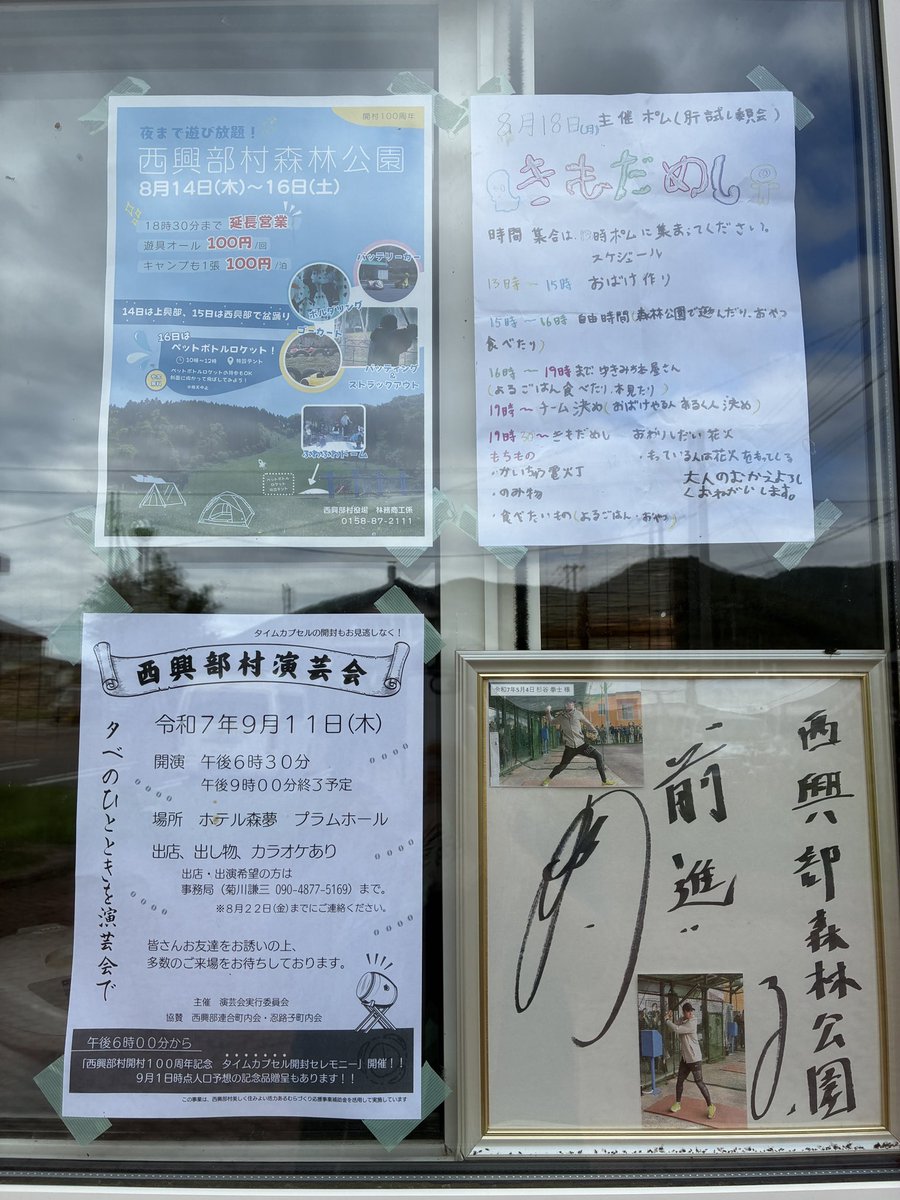 開村100周年
夜まで遊び放題！
西興部村森林公園
8月14日(木)～16日(土)
18時30分まで 延長営業
遊具オール 100円/回
キャンプも1張 100円/泊
バッテリーカー
ボルダリング
ゴーカート
14日は上興部、15日は西興部で盆踊り
バッティング
&ストラックアウト
16日は
ペットボトルロケット！
10時～12時 特設テント
ペットボトルロケットの持参もOK
斜面に向かって飛ばしてみよう！
※雨天中止
ふわふわドーム
西興部村役場 林務商工係
0158-87-2111
8月18日(月) 主催 ポム(肝試し委員会)
きもだめし
時間 集合は、13時ポムに集まってください。
スケジュール
13時～15時 おばけ作り
15時～16時 自由時間(森林公園で遊んだり、おやつ
食べたり)
16時～19時まで ゆきみちお屋さん
(よるごはん食べたり、本見たり)
19時～チーム決め(おばけやる人あるく人決め)
19時30～きもだめし おわりしだい花火
もちもの
・もっている人は花火をもってくる
・かいちゅう電灯
大人のむかえよろし
くおねがいします。
・のみ物
・食べたいもの(よるごはん・おやつ)
タイムカプセルの開封もお見逃しなく！
西興部村演芸会
夕べのひとときを演芸会で
令和7年9月11日(木)
開演 午後6時30分
午後9時00分終了予定
場所 ホテル森夢 プラムホール
出店、出し物、カラオケあり
出店・出演希望の方は
事務局（菊川謙三 090-4877-5169）まで。
※8月22日(金)までにご連絡ください。
皆さんお友達をお誘いの上、
多数のご来場をお待ちしております。
主催 演芸会実行委員会
協賛 西興部連合町内会・忍路子町内会
午後6時00分から
「西興部村開村100周年記念 タイムカプセル開封セレモニー」開催！！
9月1日時点人口予想の記念品贈呈もあります！！
この事業は、西興部村美しく住みよい活力あるむらづくり応援事業補助金を活用して実施しています
令和7年5月4日 杉谷 拳士 様
西興部森林公園
"前進"